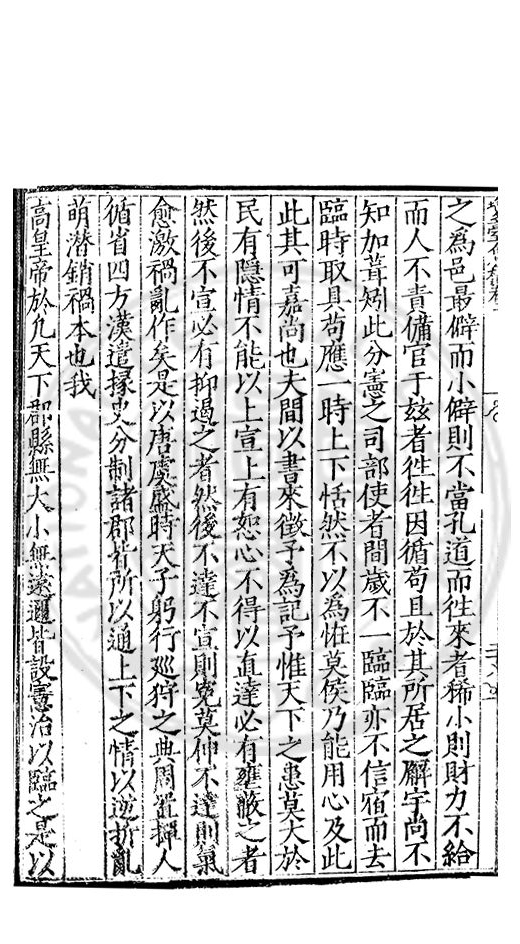 之為邑最僻而小僻則不當孔道而徃來者稀小則財力不給
而人不責備官于兹者徃徃因循苟且於其所居之廨宇尚不
知加葺矧此分憲之司部使者間歲不一臨臨亦不信宿而去
臨時取具苟應一時上下恬然不以為恠莫侯乃能用心及此
此其可嘉尚也夫間以書來徵予為記予惟天下之患莫大於
民有隱情不能以上宣上有恕心不得以直達必有壅蔽之者
然後不宣必有抑遏之者然後不達不宣則冤莫伸不達則氣
愈激禍亂作矣是以唐虞盛時天子躬行廵狩之典周置撢人
循省四方漢遣掾史分制諸郡皆所以通上下之情以逆折亂
萌潛銷禍本也我
高皇帝於凡天下郡縣無大小無遠邇皆設憲治以臨之是以